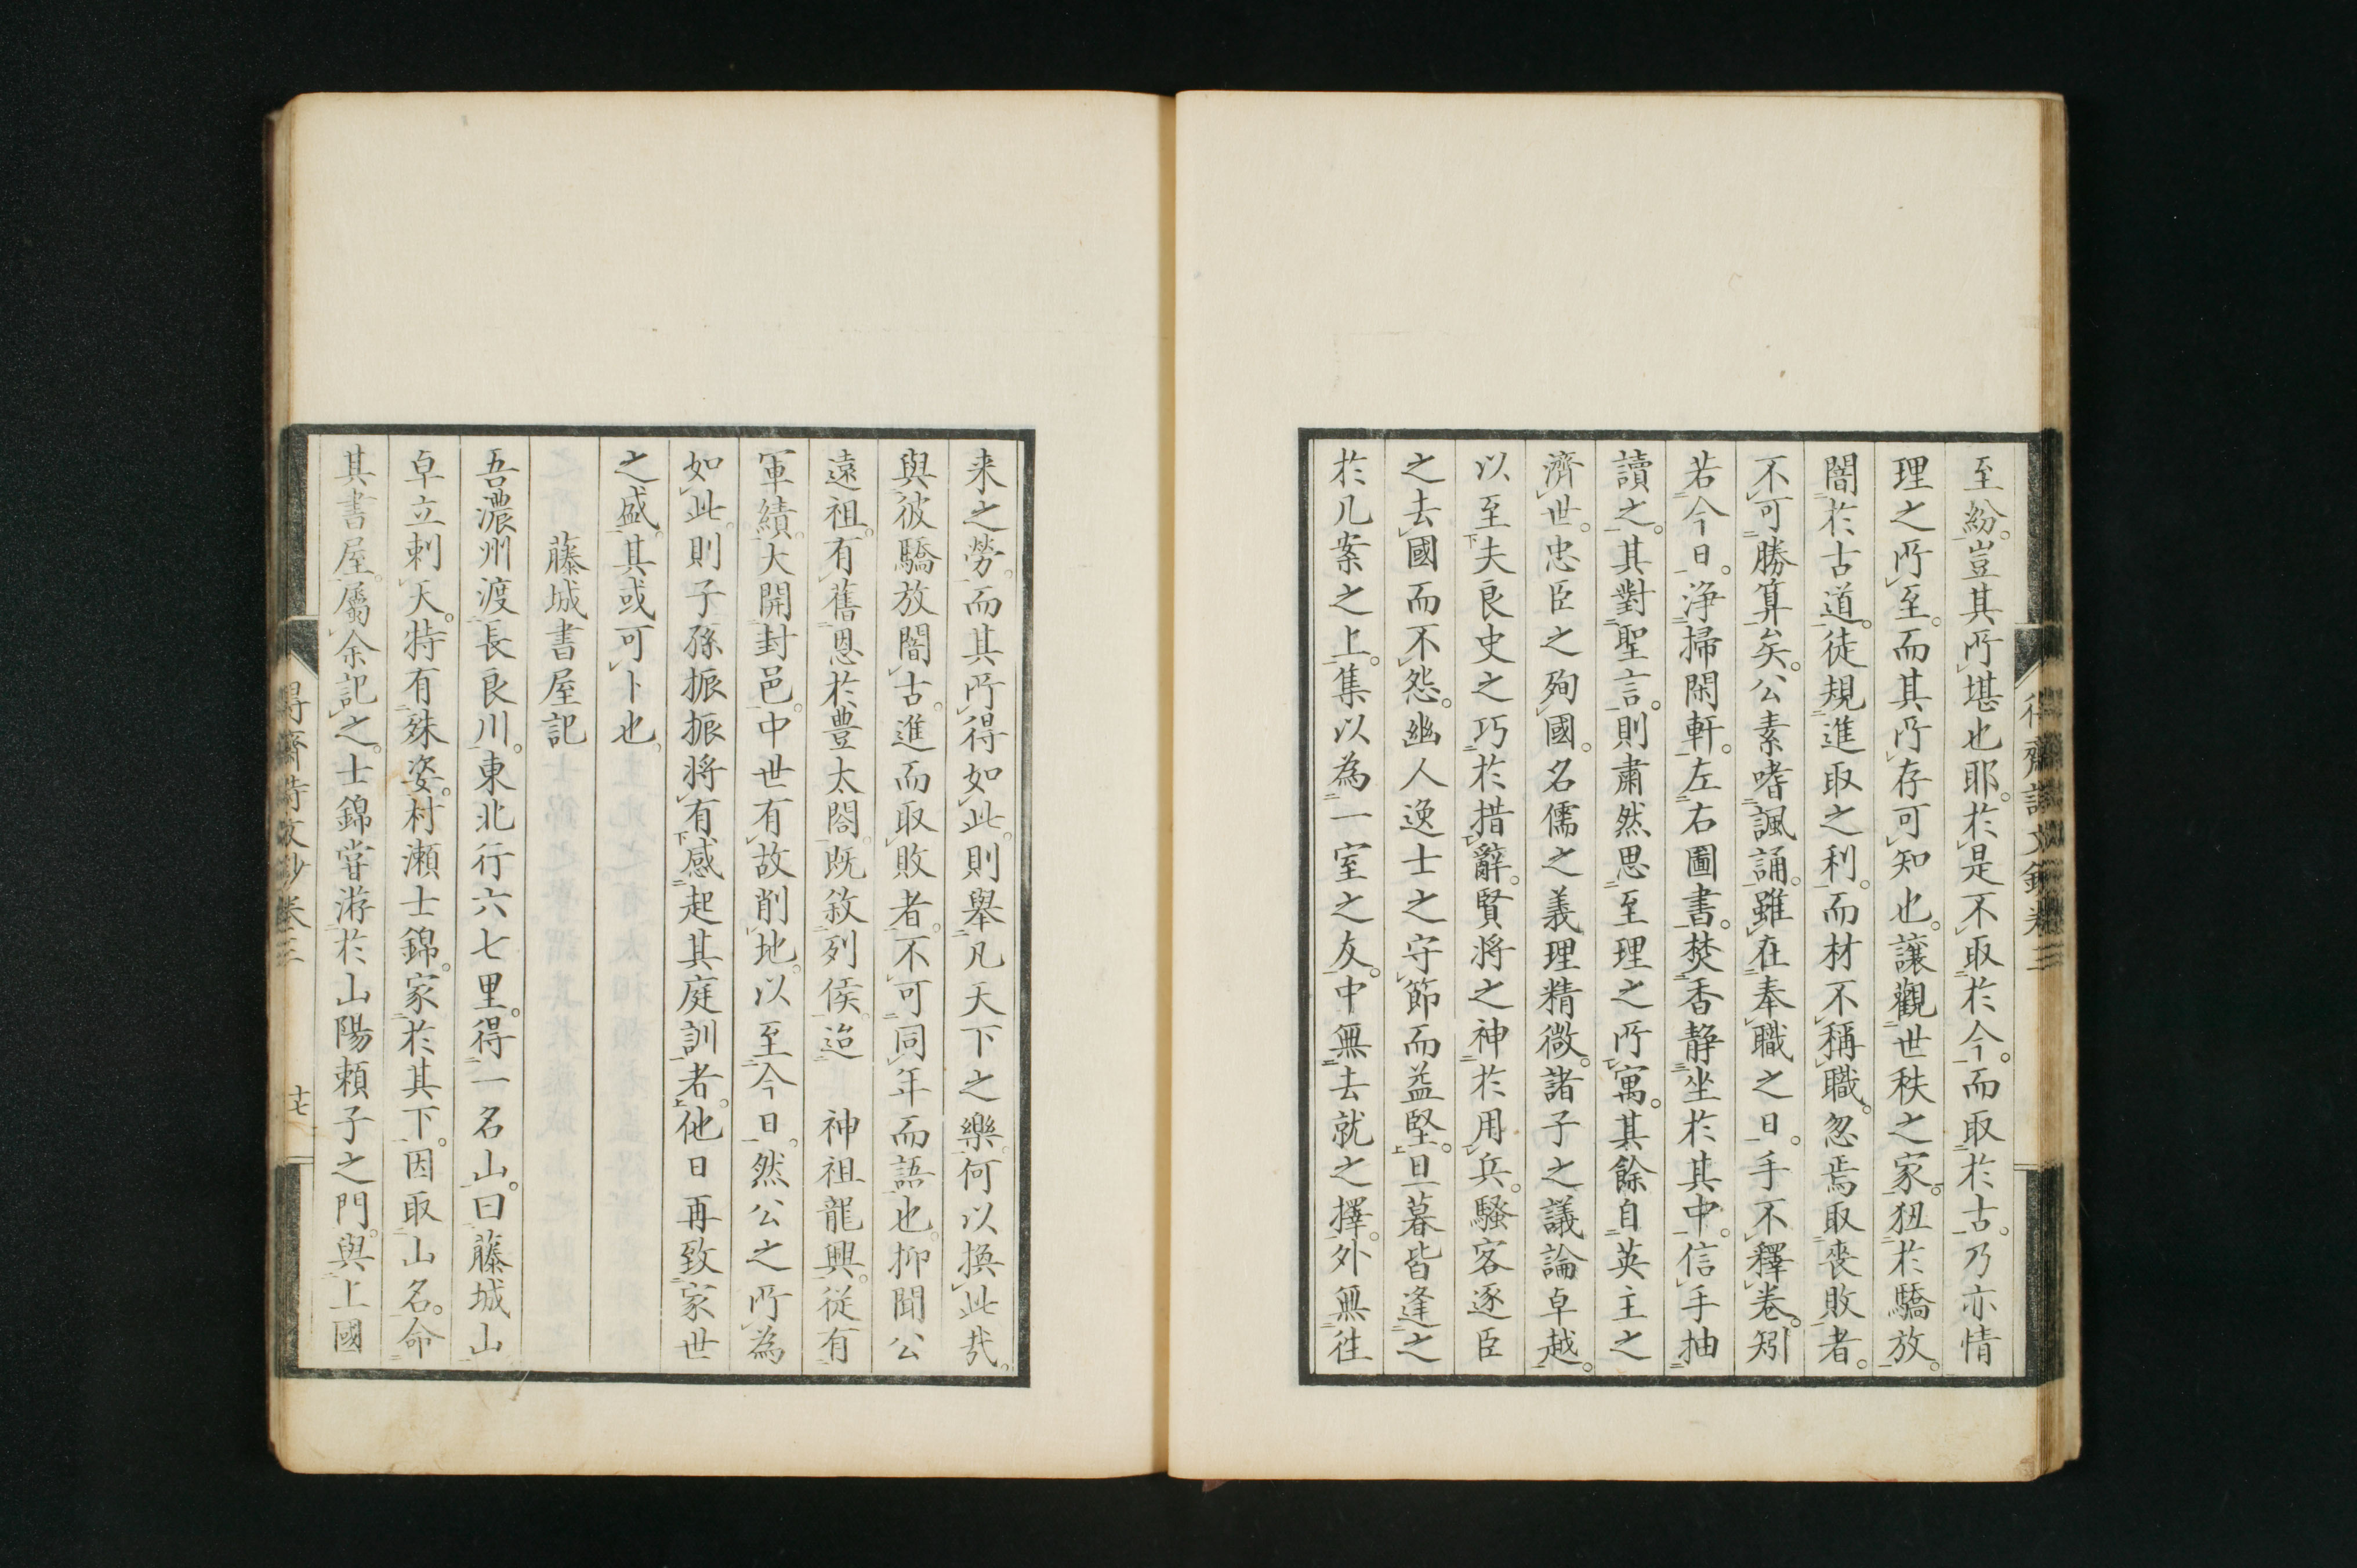 至紛。豈其所堪也耶。於是不取於今。而取於古。乃亦情
理之所至。而其所存可知也。讓觀世秩之家。狃於驕放。
闇於古道。徒規進取之利。而材不稱職。忽焉取喪敗者。
不可勝算矣。公素嗜諷誦。雖在奉職之日。手不釋卷。矧
若今日。浄掃閑軒。左右圖書。焚香静坐於其中。信手抽
讀之。其對聖言。則肅然思至理之所寓。其餘自英主之
濟世。忠臣之殉國。名儒之義理精微。諸子之議論卓越。
以至夫良史之巧於措辭。賢将之神於用兵。騷客逐臣
之去國而不怨。幽人逸士之守節而益堅。旦暮皆逢之
於几案之上。集以為一室之友。中無去就之擇。外無往
来之勞。而其所得如此。則舉凡天下之樂。何以換此哉。
與彼驕放闇古。進而取敗者。不可同年而語也。抑聞公
遠祖。有舊恩於豊太閤。既敘列侯。迨 神祖龍興。従有
軍績。大開封邑。中世有故削地。以至今日。然公之所為
如此。則子孫振振将有感起其庭訓者。他日再致家世
之盛。其或可卜也、
藤城書屋記
吾濃州渡長良川。東北行六七里。得一名山。曰藤城山
卓立刺天。特有殊姿。村瀬士錦。家於其下。因取山名。命
其書屋。屬余記之。士錦嘗游於山陽頼子之門。與上國
得齋詩文鈔卷三
十七